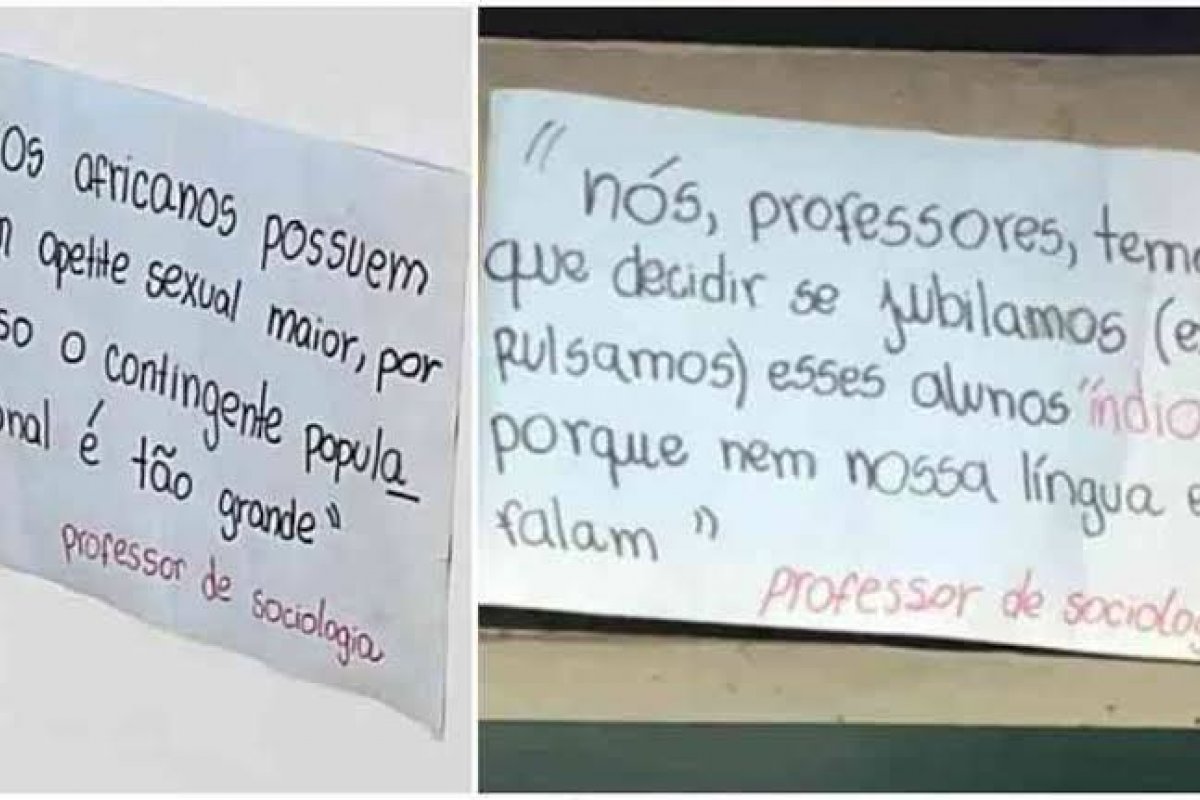 Os africanos possuem
apetite sexual maior, por
o contingente popula
é tão grande"
professor de sociologia
"nós, professores,
que decidir se jubilamos
pulsamos) esses alunos
porque nem nossa língua
falam"
professor de